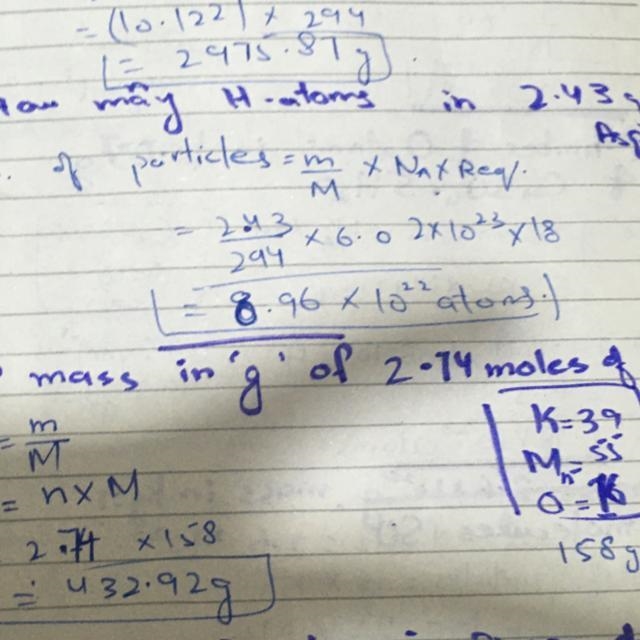 = (10.122) × 294
= 2975.87 g
How may H-atoms in 2.43 g
Asp
. of particles = m/M × NA × Req.
= 2.43/294 × 6.02×10²³ × 18
= 8.96 × 10²² atoms.
mass in 'g' of 2.74 moles of
= m/M
K=39
Mn=55
= n×M
O=16
2.74 ×158
158g
= 432.92g